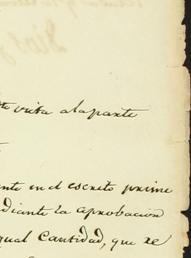 vista a la parte
ente en el escrito prime
diante la aprobacion
gual Cantidad, que se